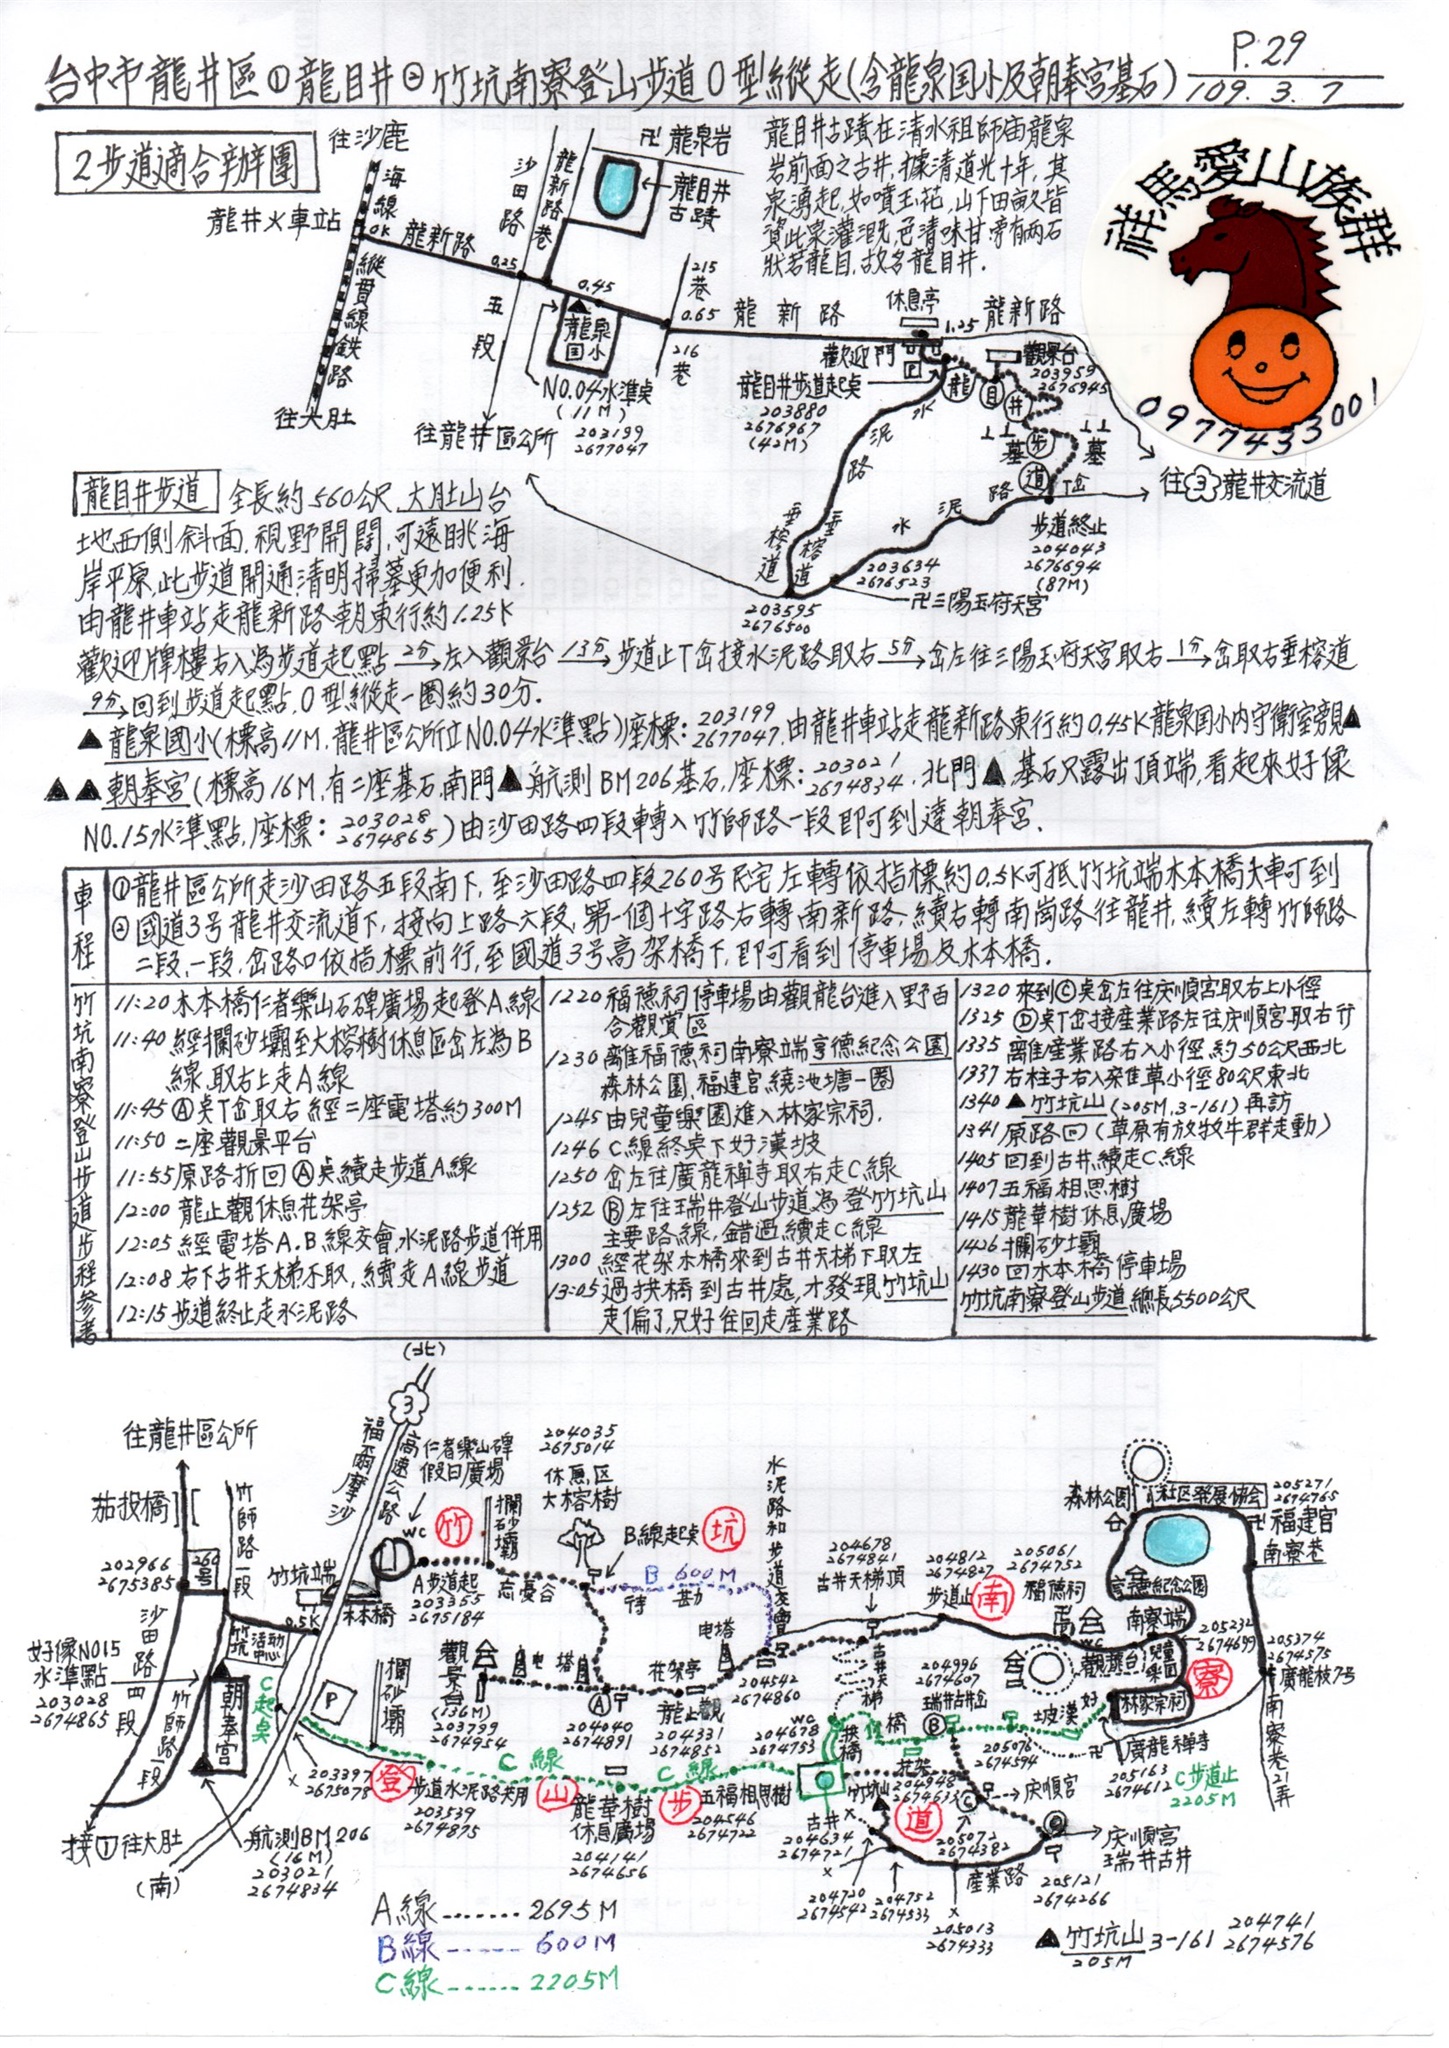 P.29
台中市龍井區①龍目井②竹坑南寮登山步道O型縱走(含龍泉国小及朝奉宮基石)
109.3.7
2步道適合辦團
祥馬愛山族群
0977433001
龍目井古蹟在清水祖師庙龍泉
岩前面之古井,據清道光十年,其
泉湧起,如噴玉花,山下田畝皆
資此泉灌溉,色清味甘,旁有兩石
狀若龍目,故名龍目井.
往沙鹿
海線縱貫線鉄路
龍井火車站
0K
龍新路
0.25
沙田路
五段
龍新路巷
卍龍泉岩
龍目井
古蹟
0.45
215巷
0.65
216巷
龍泉
国小
NO.04水準桌
(11M)
203199
2677047
往大肚
往龍井區公所
龍新路
休息亭
1.25
龍新路
歡迎門
P
龍目井步道起桌
203880
2676967
(42M)
觀景台
203959
2676945
龍目井步道
墓
墓
水泥路
水泥路
T岔
往3龍井交流道
步道終止
204043
2676694
(87M)
垂榕道
垂榕道
203634
2676523
卍三陽玉府天宮
203595
2676500
龍目井步道 全長約560公尺,大肚山台
地西側斜面,視野開闊,可遠眺海
岸平原,此步道開通清明掃墓更加便利.
由龍井車站走龍新路朝東行約1.25K
歡迎牌樓右入為步道起點 2分→左入觀景台 13分→步道止T岔接水泥路取右 5分→岔左往三陽玉府天宮取右 1分→岔取右垂榕道
9分→回到步道起點,O型縱走一圈約30分.
▲龍泉國小(標高11M,龍井區公所立NO.04水準點)座標:203199 2677047,由龍井車站走龍新路東行約0.45K龍泉国小内守衛室旁見▲
▲▲朝奉宮(標高16M,有二座基石,南門▲航測BM206基石,座標:203021 2674834,北門▲,基石只露出頂端,看起來好像
NO.15水準點,座標:203028 2674865)由沙田路四段轉入竹師路一段即可到達朝奉宮.
車程
①龍井區公所走沙田路五段南下,至沙田路四段260号民宅左轉依指標約0.5K可抵竹坑端木本橋,大車可到
②國道3号龍井交流道下,接向上路六段,第一個十字路右轉南新路,續右轉南崗路往龍井,續左轉竹師路
二段,一段,岔路口依指標前行,至國道3号高架橋下,即可看到停車場及木本橋.
竹坑南寮登山步道步程參考
11:20 木本橋仁者樂山石碑廣場起登A線
11:40 經攔砂壩至大榕樹休息區岔左為B
線,取右上走A線
11:45 Ⓐ桌T岔取右經二座電塔約300M
11:50 二座觀景平台
11:55 原路折回Ⓐ桌續走步道A線
12:00 龍止觀休息花架亭
12:05 經電塔A.B線交會,水泥路步道併用
12:08 右下古井天梯不取,續走A線步道
12:15 步道終止走水泥路
1220 福德祠停車場由觀龍台進入野百
合觀賞區
1230 離福德祠南寮端亨德紀念公園
森林公園,福建宮繞池塘一圈
1245 由兒童樂園進入林家宗祠.
1246 C線終桌下好漢坡
1250 岔左往廣龍禅寺取右走C線
1252 Ⓑ左往瑞井登山步道為登竹坑山
主要路線,錯過續走C線
1300 經花架木橋來到古井天梯下取左
13:05 過拱橋到古井處,才發現竹坑山
走偏了,只好往回走產業路
1320 來到Ⓒ桌岔左往庆順宮取右上小徑
1325 Ⓓ桌T岔接産業路左往庆順宮取右行
1335 離産業路右入小徑約50公尺西北
1337 右柱子右入雜草小徑80公尺東北
1340 ▲竹坑山(205M,3-161)再訪
1341 原路回(草原有放牧牛群走動)
1405 回到古井續走C線
1407 五福相思樹
1415 龍華樹休息廣場
1426 攔砂壩
1430 回木本橋停車場
竹坑南寮登山步道總長5500公尺
(北)
3
福爾摩沙
高速公路
往龍井區公所
茄投橋
竹師路一段
202966
2675385
260号
竹坑端
0.5K
木本橋
竹坑活動中心
沙田路四段
竹師路一段
好像NO15
水準點
203028
2674865
朝奉宮
C起桌
P
203397
2675078
接1往大肚
(南)
航測BM206
(16M)
203021
2674834
仁者樂山碑
假日廣場
WC
竹
攔砂壩
A步道起
203355
2675184
高憂谷
204035
2675014
休息区
大榕樹
B線起桌
坑
B 600M
水泥路和步道交會
觀景台
(136M)
203799
2674954
电塔
Ⓐ
204040
2674891
花架亭
龍止觀
204331
2674852
电塔
204542
2674860
204678
2674841
古井天梯頂
古井天梯
204812
2674827
步道止
南
205061
2674752
福德祠
森林公園
社区發展協會
205271
2674765
卍福建宮
南寮巷
亨德紀念公園
南寮端
205232
2674699
WC
觀龍台
兒童樂園
寮
林家宗祠
205374
2674575
廣龍枝7号
南寮巷21弄
卍廣龍禅寺
205163
2674612
C步道止
2205M
好漢坡
205076
2674594
204996
2674607
瑞井古井岔
Ⓑ
WC
204678
2674753
拱橋
木橋
花架
204948
2674633
攔砂壩
C線
登
步道水泥路共用
203539
2674875
山
龍華樹
休息廣場
204141
2674656
C線
步
五福相思樹
204546
2674722
古井
204634
2674721
竹坑山
道
Ⓒ
庆順宮
205072
2674382
Ⓓ
庆順宮
瑞井古井
産業路
205121
2674266
204720
2674542
204752
2674533
205013
2674333
A線.......2695M
B線......600M
C線......2205M
▲竹坑山 3-161 204741 2674576
205M